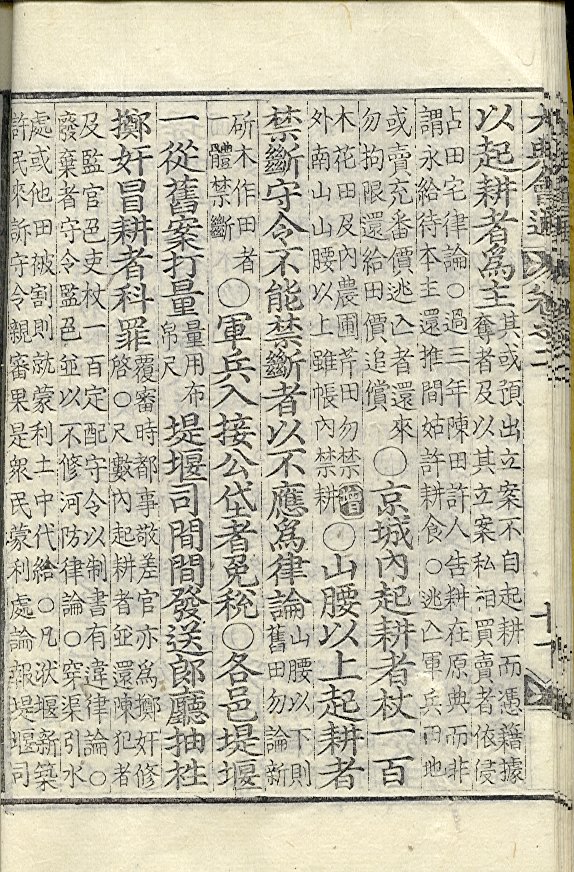 大典會通 卷之二 十一
以起耕者爲主
其或預出立案不自起耕而憑藉據
奪者及以其立案私相買賣者依侵
占田宅律論○過三年陳田許人告耕在原典而非
謂永給待本主還推間姑許耕食○逃亡軍兵田地
或賣充番價逃亡者還來
勿拘限還給田價追償
○京城內起耕者杖一百
木花田及內農圃芹田勿禁增
外南山山腰以上雖帳內禁耕
○山腰以上起耕者
禁斷守令不能禁斷者以不應爲律論
山腰以下則
舊田勿論新
斫木作田者
一體禁斷
○軍兵入接公垈者免稅○各邑堤堰
一從舊案打量
量用布
帛尺
堤堰司間間發送郎廳抽栍
擲奸冒耕者科罪
覆審時都事敬差官亦爲擲奸修
啓○尺數內起耕者並還陳犯者
及監官色吏杖一百定配守令以制書有違律論○
廢棄者守令監色並以不修河防律論○穿渠引水
處或他田破割則就蒙利土中代給○凡狀堰新築
許民來訴守令親審果是衆民蒙利處論報堤堰司